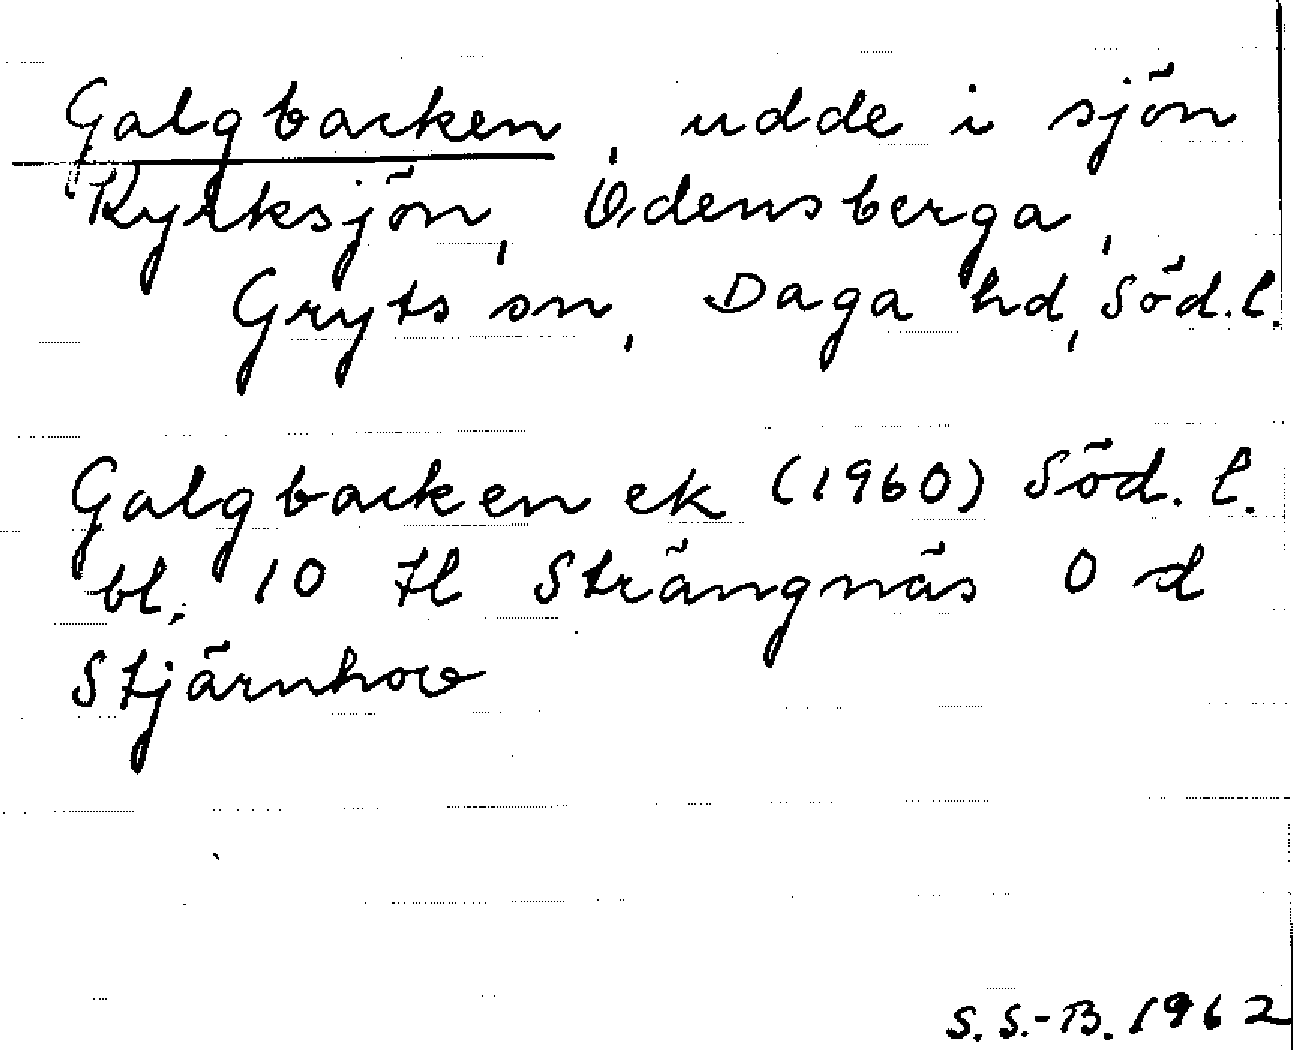 Galgbacken, udde i sjön
Kyrksjön, Odensberga,
Gryts sn, Daga hd, Söd.l.
Galgbacken ek (1960) Söd. l.
bl. 10 tl Strängnäs O d
Stjärnhov
S. S.-B. 1962